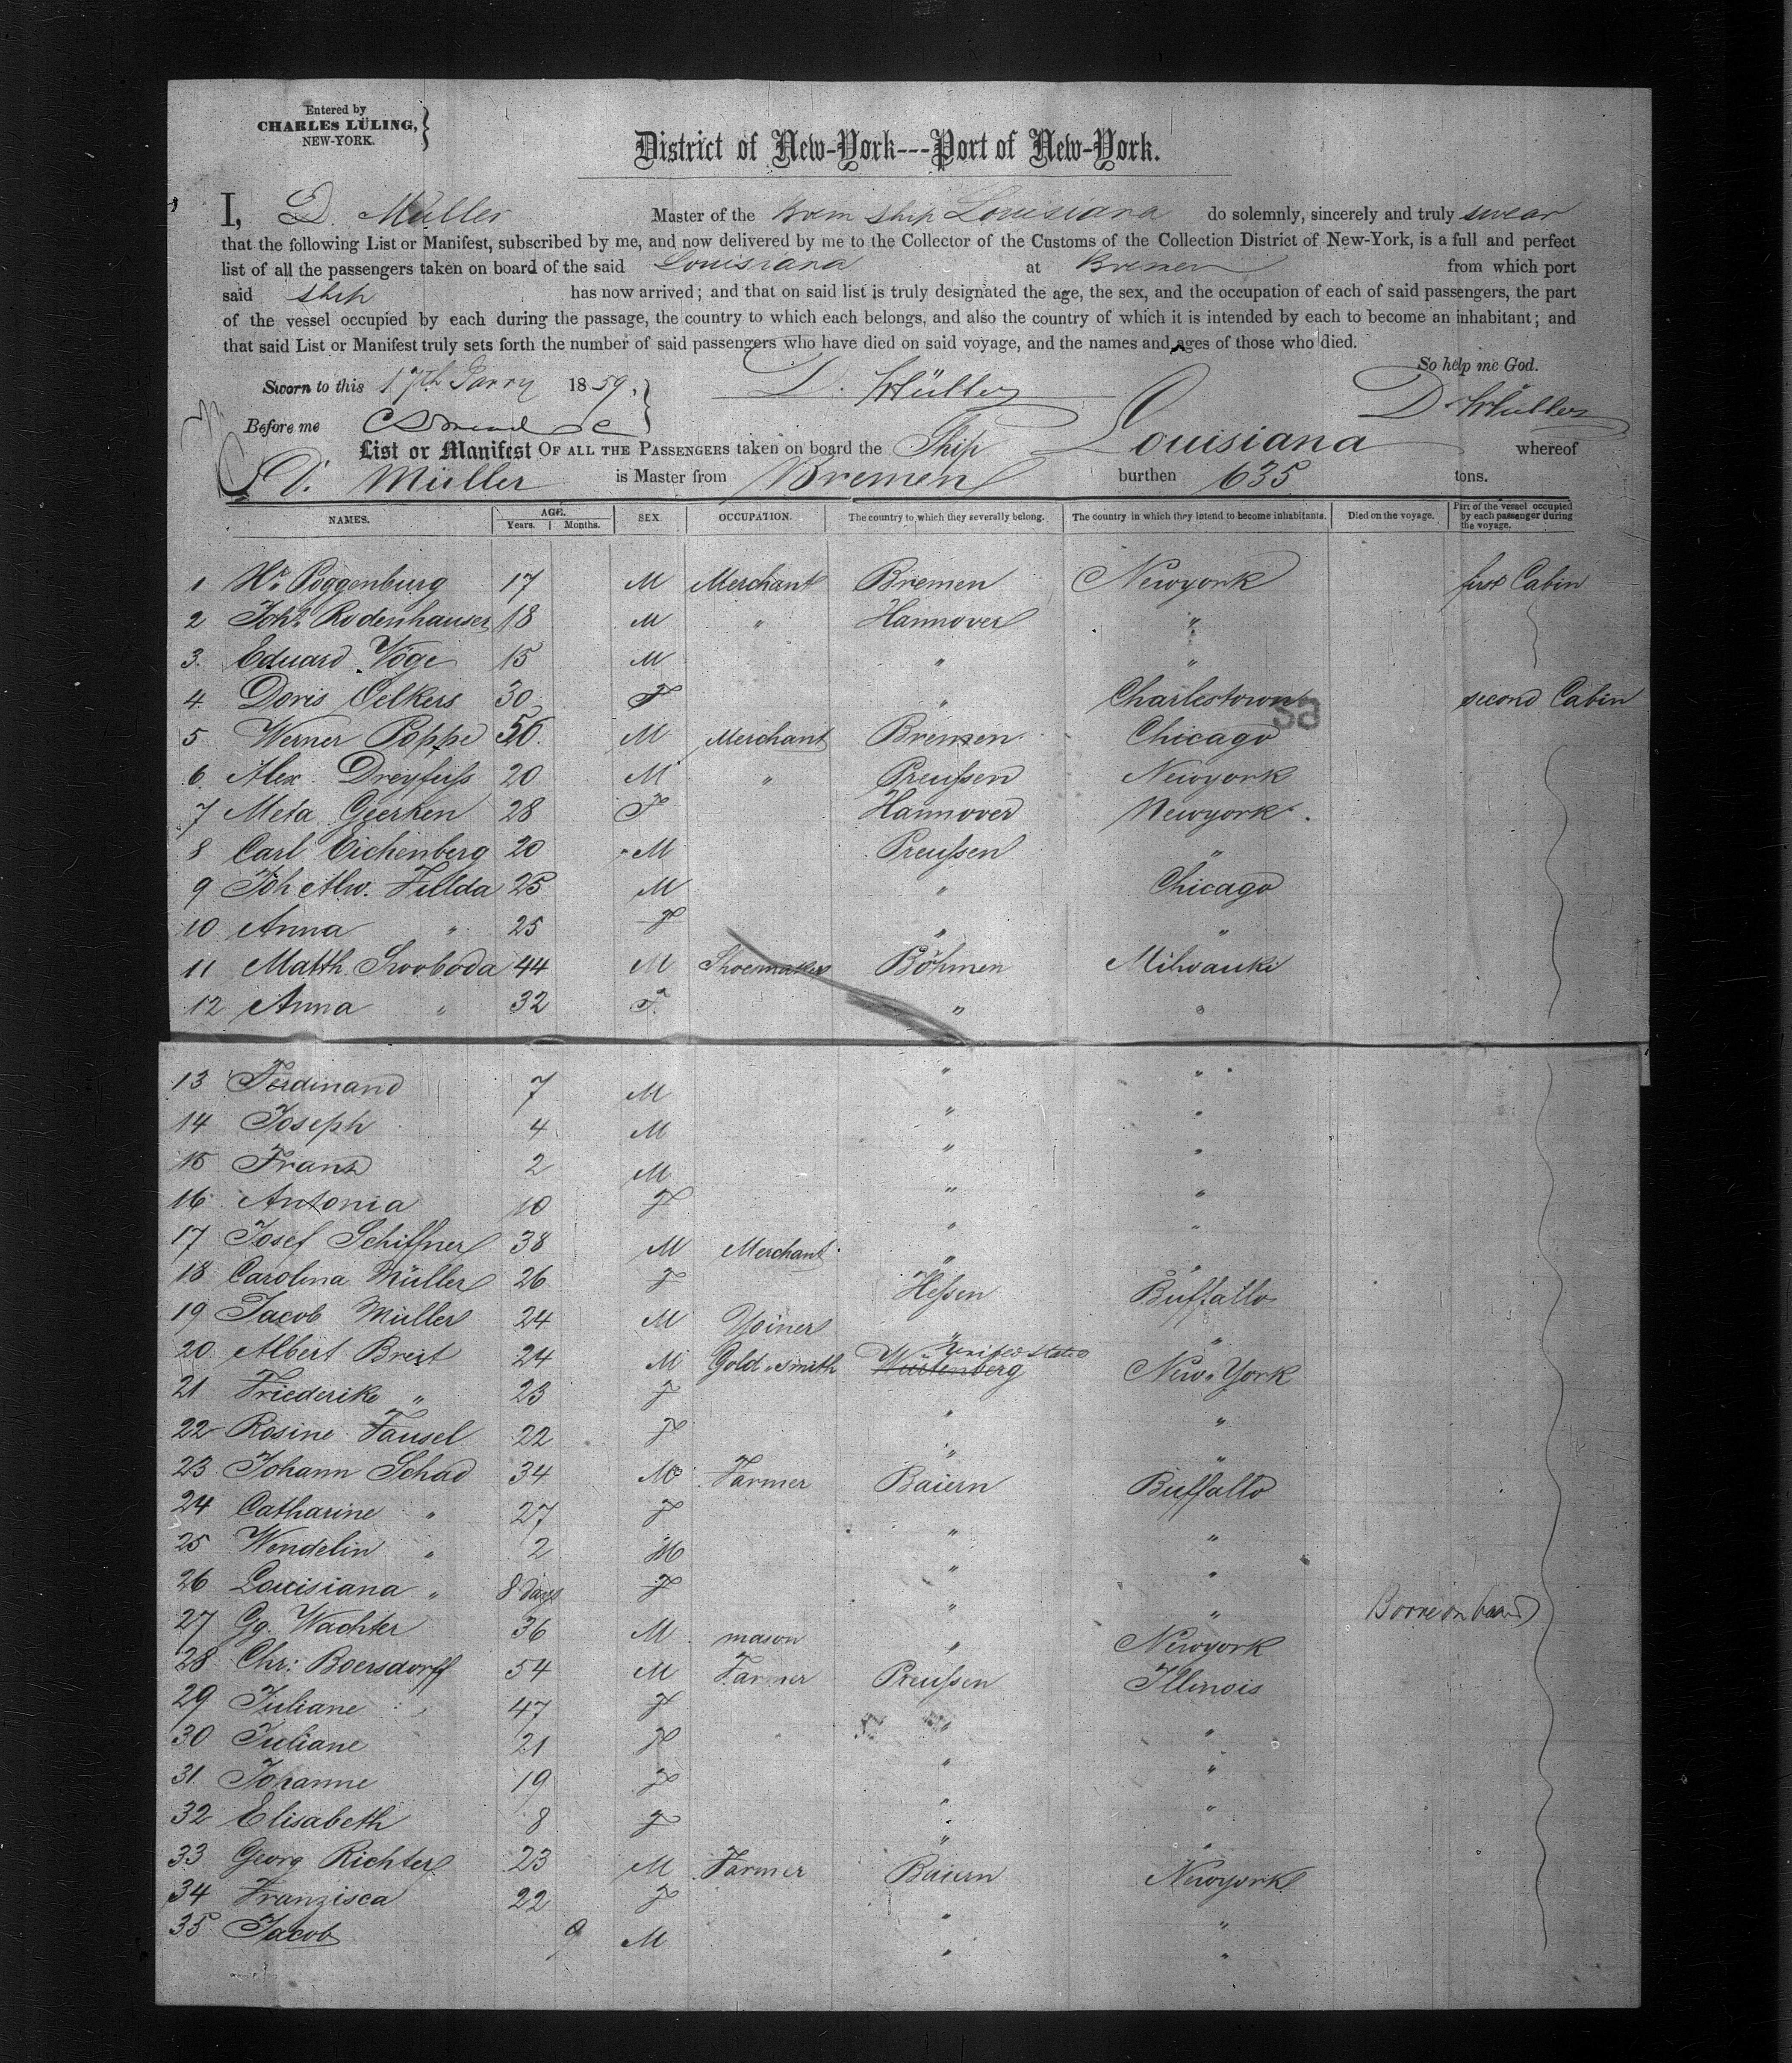 Entered by
CHARLES LÜLING,
NEW-YORK.
District of New-York---Port of New-York.
I, D. Müller Master of the Brem ship Louisiana do solemnly, sincerely and truly swear
that the following List or Manifest, subscribed by me, and now delivered by me to the Collector of the Customs of the Collection District of New-York, is a full and perfect
list of all the passengers taken on board of the said Louisiana at Bremen from which port
said ship has now arrived; and that on said list is truly designated the age, the sex, and the occupation of each of said passengers, the part
of the vessel occupied by each during the passage, the country to which each belongs, and also the country of which it is intended by each to become an inhabitant; and
that said List or Manifest truly sets forth the number of said passengers who have died on said voyage, and the names and ages of those who died.
So help me God.
Sworn to this 17th Janry 1859, D. Müller D. Müller
Before me
List or Manifest OF ALL THE PASSENGERS taken on board the Ship Louisiana whereof
D. Müller is Master from Bremen burthen 635 tons.
NAMES. AGE. Years. Months. SEX. OCCUPATION. The country to which they severally belong. The country in which they intend to become inhabitants. Died on the voyage. Part of the vessel occupied by each passenger during the voyage.
1 Hr. Poggenburg 17 M Merchant Bremen Newyork first Cabin
2 Johs. Rodenhauser 18 M " Hannover "
3. Eduard Vöge 15 M " "
4 Doris Oelkers 30 F " Charlestown second Cabin
5 Werner Poppe 56. M Merchant Bremen Chicago
6. Alex. Dreyfuss 20 M " Preussen Newyork
7 Meta Geerken 28 F Hannover Newyork.
8 Carl Eichenberg 20 M Preussen "
9 Joh Alw. Fellda 25 M " Chicago
10 Anna " 25 F " "
11 Matth. Swoboda 44 M Shoemaker Böhmen Milwauki
12 Anna " 32 F. " "
13 Ferdinand 7 M " "
14 Joseph 4 M " "
15 Franz 2 M " "
16 Antonia 10 F " "
17 Josef Schiffner 38 M Merchant " "
18 Carolina Müller 26 F Hessen Buffallo
19 Jacob Müller 24 M Yoiner " "
20 Albert Breit 24 M Gold-smith Würtenberg United States New-York
21 Friederike " 23 F " "
22 Rosine Fausel 22 F " "
23 Johann Schad 34 M Farmer Baiern Buffallo
24 Catharine " 27 F " "
25 Wendelin " 2 M " "
26 Louisiana " 8 days F " " Borne on board
27 Gg. Wachter 36 M mason " Newyork
28 Chr: Boersdorff 54 M Farmer Preussen Illinois
29 Juliane " 47 F " "
30 Juliane 21 F " "
31 Johanne 19 F " "
32 Elisabeth 8 F " "
33 Georg Richter 23 M Farmer Baiern Newyork
34 Franzisca 22 F " "
35 Jacob 9 M " "